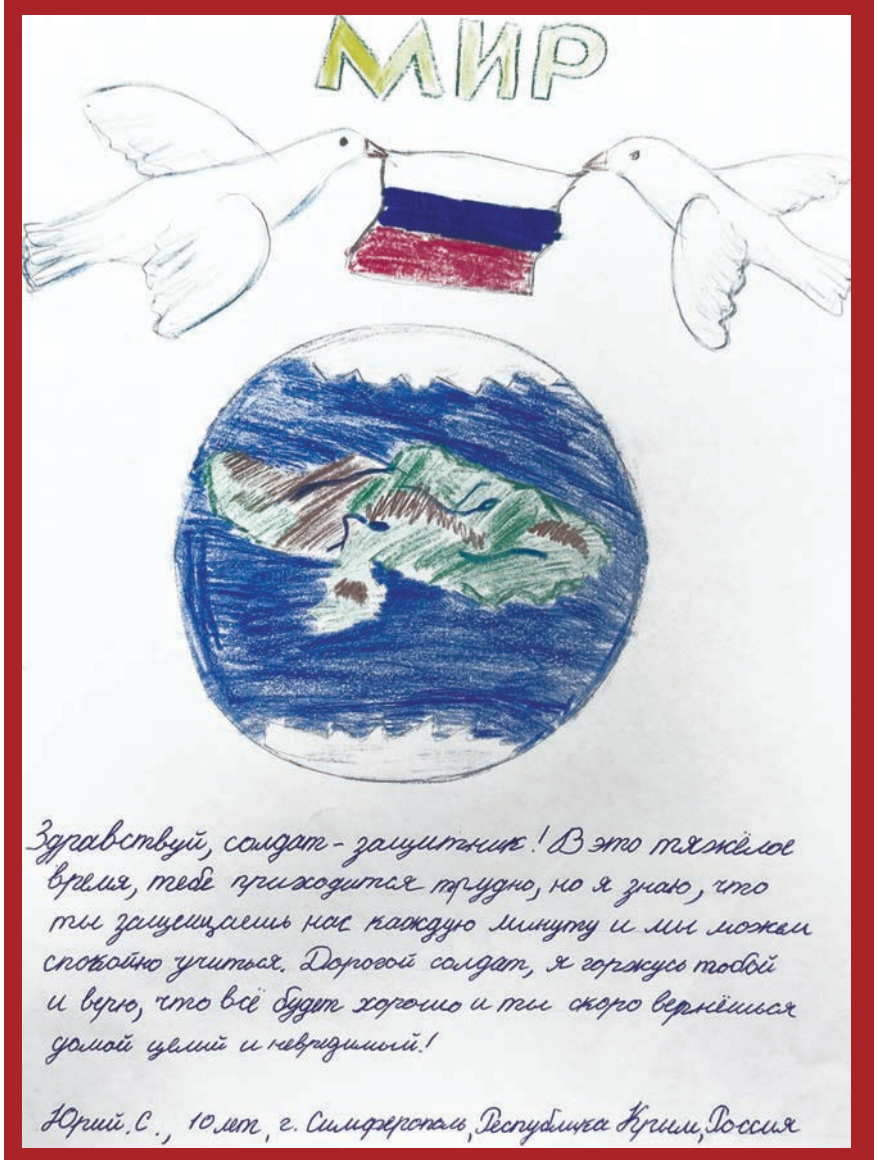 МИР
Здравствуй, солдат - защитник! В это тяжёлое
время, тебе приходится трудно, но я знаю, что
ты защищаешь нас каждую минуту и мы можем
спокойно учиться. Дорогой солдат, я горжусь тобой
и верю, что всё будет хорошо и ты скоро вернёшься
домой целий и невредимый!
Юрий. С., 10 лет, г. Симферополь, Республика Крым, Россия